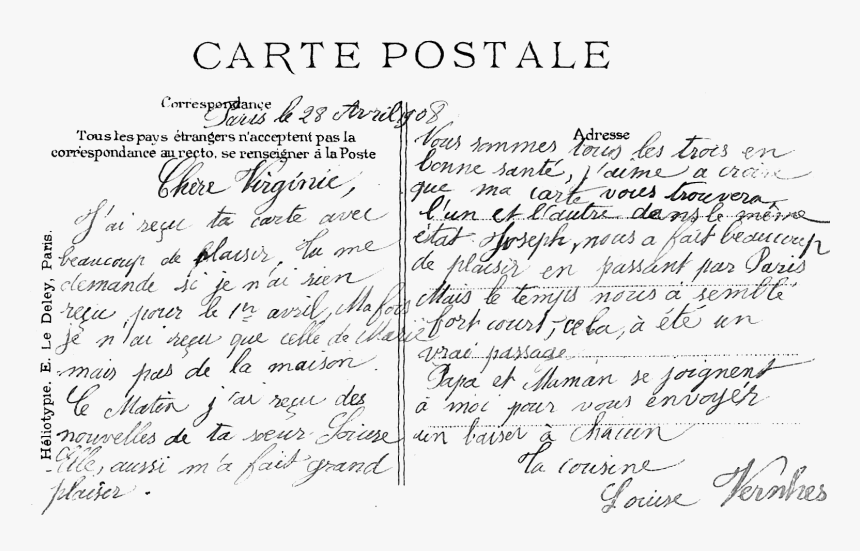 CARTE POSTALE
Correspondance
Paris le 28 Avril 1908
Tous les pays étrangers n'acceptent pas la
correspondance au recto, se renseigner à la Poste
Chère Virginie,
J'ai reçu ta carte avec
beaucoup de plaisir, tu me
demande si je n'ai rien
reçu, pour le 1er avril, Ma fois
je n'ai reçu que celle de Marie
mais pas de la maison.
Ce Matin j'ai reçu des
nouvelles de ta sœur Louise
Elle, aussi m'a fait grand
plaisir.
Adresse
Nous sommes tous les trois en
bonne santé, j'aime a croire
que ma carte vous trouvera
l'un et l'autre dans le même
état. Joseph, nous a fait beaucoup
de plaisir en passant par Paris
Mais le temps nous à semblé
fort court, cela, à été un
vrai passage
Papa et Maman se joignent
à moi pour vous envoyér
un baiser à Chacun
Ta cousine
Louise Vernhes
Héliotypie. E. Le Deley, Paris.